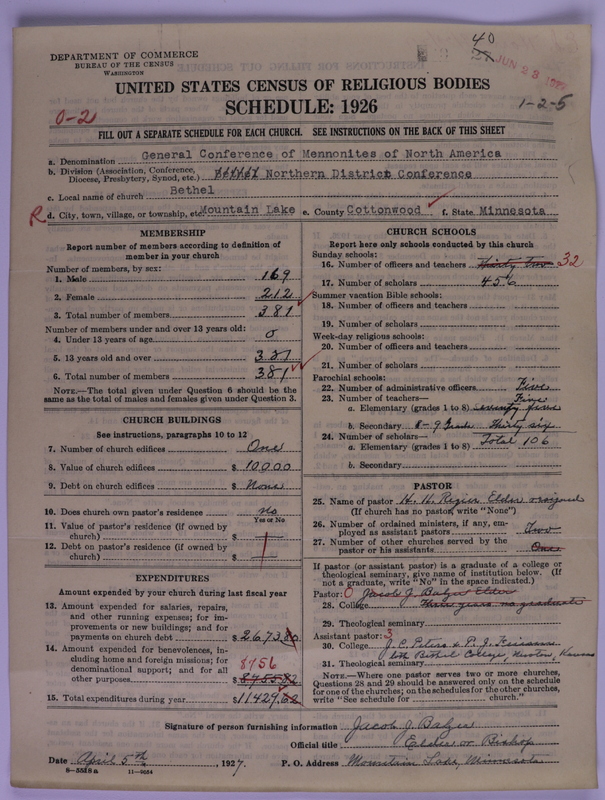 40
JUN 23 192
DEPARTMENT OF COMMERCE
BUREAU OF THE CENSUS
WASHINGTON
UNITED STATES CENSUS OF RELIGIOUS BODIES
SCHEDULE: 1926
0-2
1-2-5
FILL OUT A SEPARATE SCHEDULE FOR EACH CHURCH. SEE INSTRUCTIONS ON THE BACK OF THIS SHEET
a. Denomination General Conference of Mennonites of North America
b. Division (Association, Conference, Diocese, Presbytery, Synod, etc.) Northern District Conference
c. Local name of church Bethel
R d. City, town, village, or township, etc. Mountain Lake e. County Cottonwood f. State Minnesota
MEMBERSHIP
Report number of members according to definition of
member in your church
Number of members, by sex:
1. Male 169
2. Female 212
3. Total number of members 381
Number of members under and over 13 years old:
4. Under 13 years of age 0
5. 13 years old and over 381
6. Total number of members 381
NOTE.—The total given under Question 6 should be the
same as the total of males and females given under Question 3.
CHURCH BUILDINGS
See instructions, paragraphs 10 to 12
7. Number of church edifices One
8. Value of church edifices $ 10000
9. Debt on church edifices $ None
10. Does church own pastor's residence no
Yes or No
11. Value of pastor's residence (if owned by
church) $
12. Debt on pastor's residence (if owned by
church) $
EXPENDITURES
Amount expended by your church during last fiscal year
13. Amount expended for salaries, repairs,
and other running expenses; for im-
provements or new buildings; and for
payments on church debt $ 2673.80
14. Amount expended for benevolences, in-
cluding home and foreign missions; for
denominational support; and for all 8756
other purposes $ 8755.82
15. Total expenditures during year $ 11429.62
CHURCH SCHOOLS
Report here only schools conducted by this church
Sunday schools:
16. Number of officers and teachers Thirty two 32
17. Number of scholars 456
Summer vacation Bible schools:
18. Number of officers and teachers
19. Number of scholars
Week-day religious schools:
20. Number of officers and teachers
21. Number of scholars
Parochial schools:
22. Number of administrative officers Five
23. Number of teachers— Five
a. Elementary (grades 1 to 8) seventy five
b. Secondary 8-9 Grade Thirty six
24. Number of scholars— Total 106
a. Elementary (grades 1 to 8)
b. Secondary
PASTOR
25. Name of pastor H. H. Regier Elder resigned
(If church has no pastor, write "None")
26. Number of ordained ministers, if any, em-
ployed as assistant pastors Two
27. Number of other churches served by the
pastor or his assistants One
If pastor (or assistant pastor) is a graduate of a college or
theological seminary, give name of institution below. (If
not a graduate, write "No" in the space indicated.)
Pastor: 0 Jacob J. Balzer Elder
28. College Three years no graduate
29. Theological seminary
Assistant pastor: 3
30. College J. C. Peters &
Bethel College, Newton, Kansas
31. Theological seminary
NOTE.—Where one pastor serves two or more churches,
Questions 28 and 29 should be answered only on the schedule
for one of the churches; on the schedules for the other churches,
write "See schedule for church."
Signature of person furnishing information Jacob J. Balzer
Official title Elder or Bishop
Date April 5th, 1927. P. O. Address Mountain Lake, Minnesota
8-5518a 11-9054